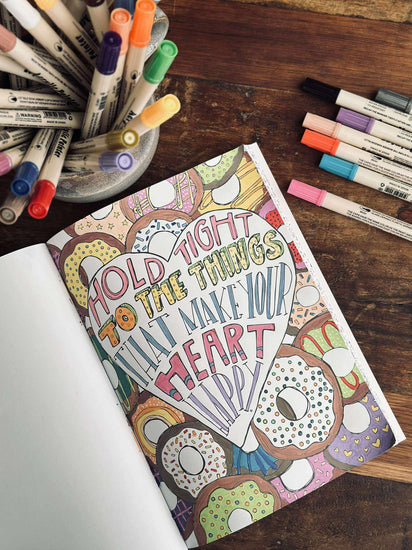 HOLD TIGHT
TO THE THINGS
THAT MAKE YOUR
HEART
HAPPY